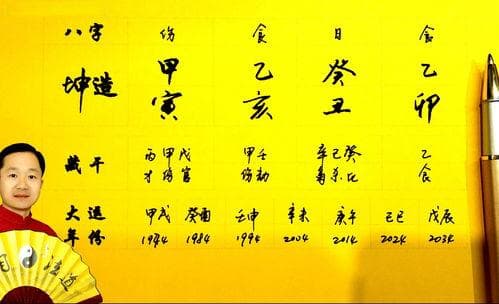 八字 伤 食 日 食
坤造 甲 乙 癸 乙
寅 亥 丑 卯
藏干 丙甲戊 甲壬 辛己癸 乙
才伤官 伤劫 枭杀比 食
大运 甲戌 癸酉 壬申 辛未 庚午 己巳 戊辰
年份 1974 1984 1994 2004 2014 2024 2034
道